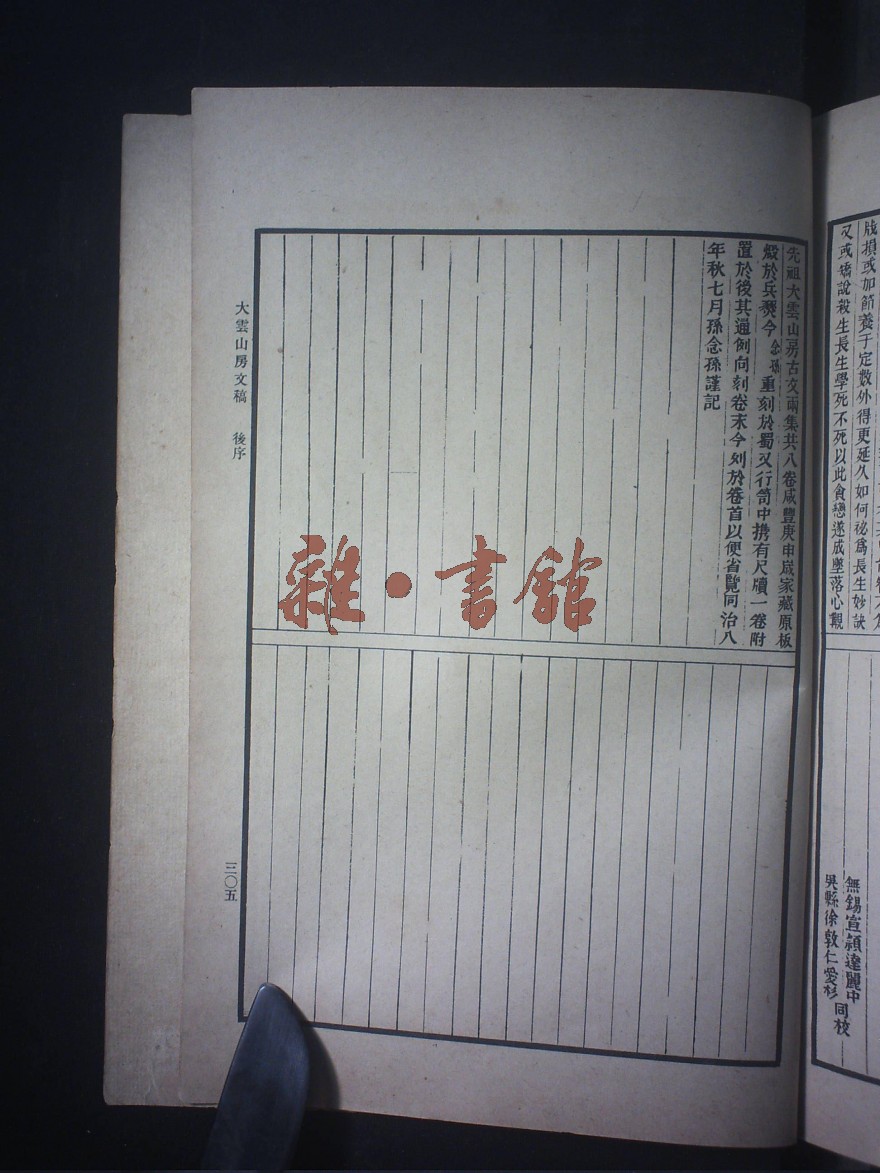 戕損或加節養于定數外得更延久如何祕爲長生妙訣
又或矯說殺生長生學死不死以此貪戀遂成墮落心觀
無錫宣穎達麗中
吳縣徐敦仁愛杉
同校
先祖大雲山房古文兩集共八卷咸豐庚申歲家藏原板
燬於兵燹今念孫重刻於蜀又行笥中携有尺牘一卷附
置於後其通例向刻卷末今列於卷首以便省覽同治八
年秋七月孫念孫謹記
大雲山房文稿 後序
三〇五
雜·書館